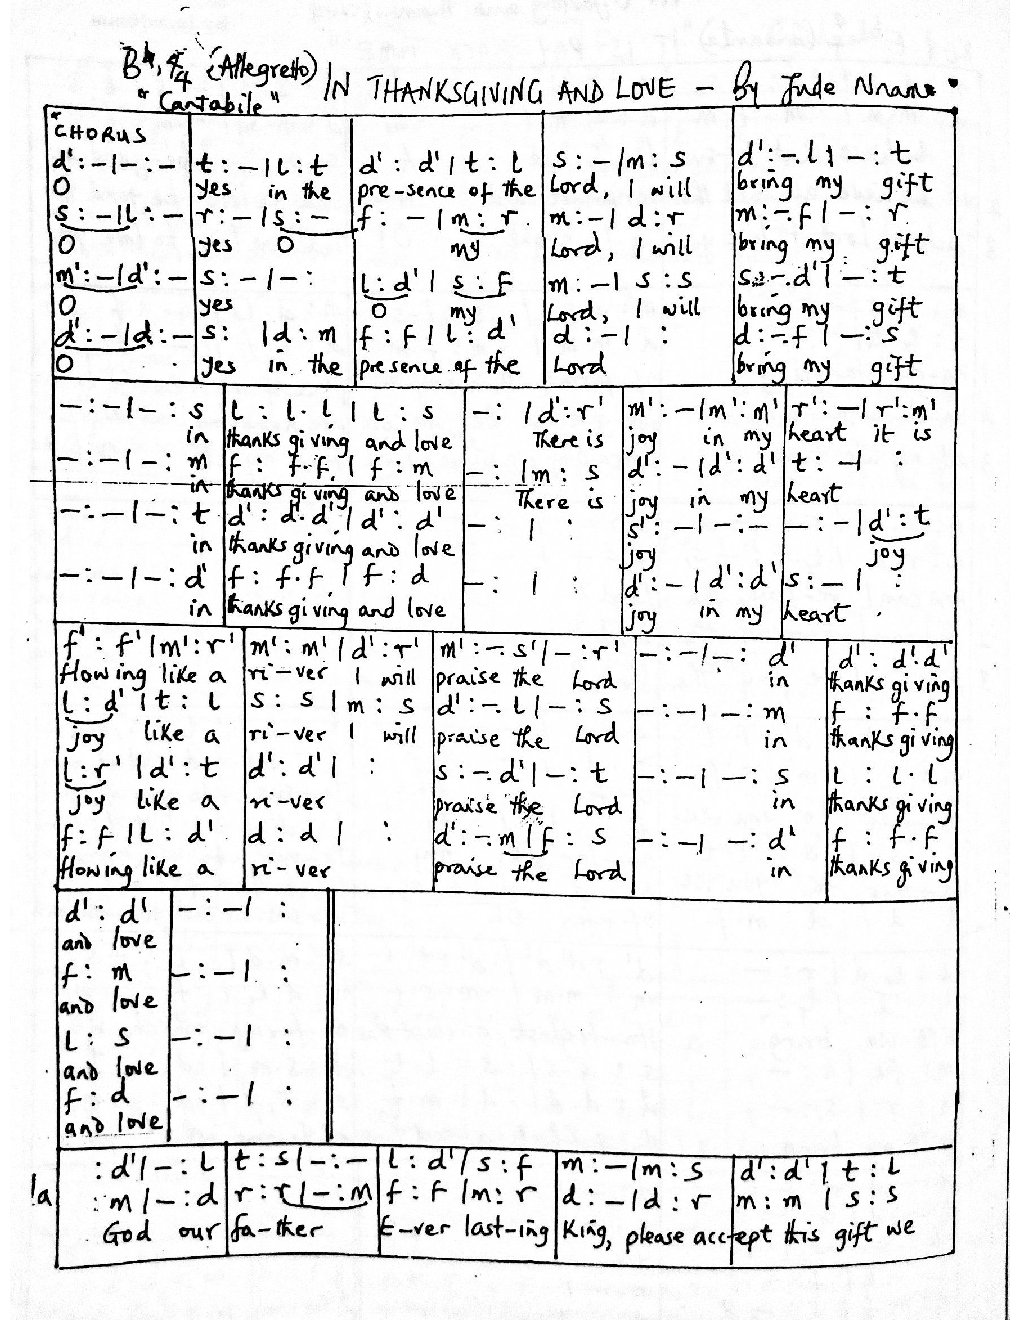 B♭, 4/4 (Allegretto) IN THANKSGIVING AND LOVE – By Jude Nnam
"Cantabile"
CHORUS
d' : – | – : – | t : – | l : t | d' : d' | t : l | s : – | m : s | d' : –. l | – : t
O yes in the pre-sence of the Lord, I will bring my gift
s : – | l : – | r : – | s : – | f : – | m : r | m : – | d : r | m : –. f | – : r
O yes O my Lord, I will bring my gift
m' : – | d' : – | s : – | – : | l : d' | s : f | m : – | s : s | s : –. d' | – : t
O yes O my Lord, I will bring my gift
d' : – | d : – | s : | d : m | f : f | l : d' | d : – | : | d : –. f | – : s
O yes in the presence of the Lord bring my gift
– : – | – : s | l : l . l | l : s | – : | d' : r' | m' : – | m' : m' | r' : – | r' : m'
in thanks giving and love There is joy in my heart it is
– : – | – : m | f : f . f | f : m | – : | m : s | d' : – | d' : d' | t : – | :
in thanks giving and love There is joy in my heart
– : – | – : t | d' : d' . d' | d' : d' | – : | : | s' : – | – : – | – : – | d' : t
in thanks giving and love joy joy
– : – | – : d' | f : f . f | f : d | – : | : | d' : – | d' : d' | s : – | :
in thanks giving and love joy in my heart
f' : f' | m' : r' | m' : m' | d' : r' | m' : –. s' | – : r' | – : – | – : d' | d' : d' . d'
flowing like a ri-ver I will praise the Lord in thanks giving
l : d' | t : l | s : s | m : s | d' : –. l | – : s | – : – | – : m | f : f . f
joy like a ri-ver I will praise the Lord in thanks giving
l : r' | d' : t | d' : d' | : | s : –. d' | – : t | – : – | – : s | l : l . l
joy like a ri-ver praise the Lord in thanks giving
f : f | l : d' | d : d | : | d' : –. m | f : s | – : – | – : d' | f : f . f
flowing like a ri-ver praise the Lord in thanks giving
d' : d' | – : – | :
and love
f : m | – : – | :
and love
l : s | – : – | :
and love
f : d | – : – | :
and love
: d' | – : l | t : s | – : – | l : d' | s : f | m : – | m : s | d' : d' | t : l
1a : m | – : d | r : r | – : m | f : f | m : r | d : – | d : r | m : m | s : s
God our fa-ther E-ver last-ing King, please accept this gift we